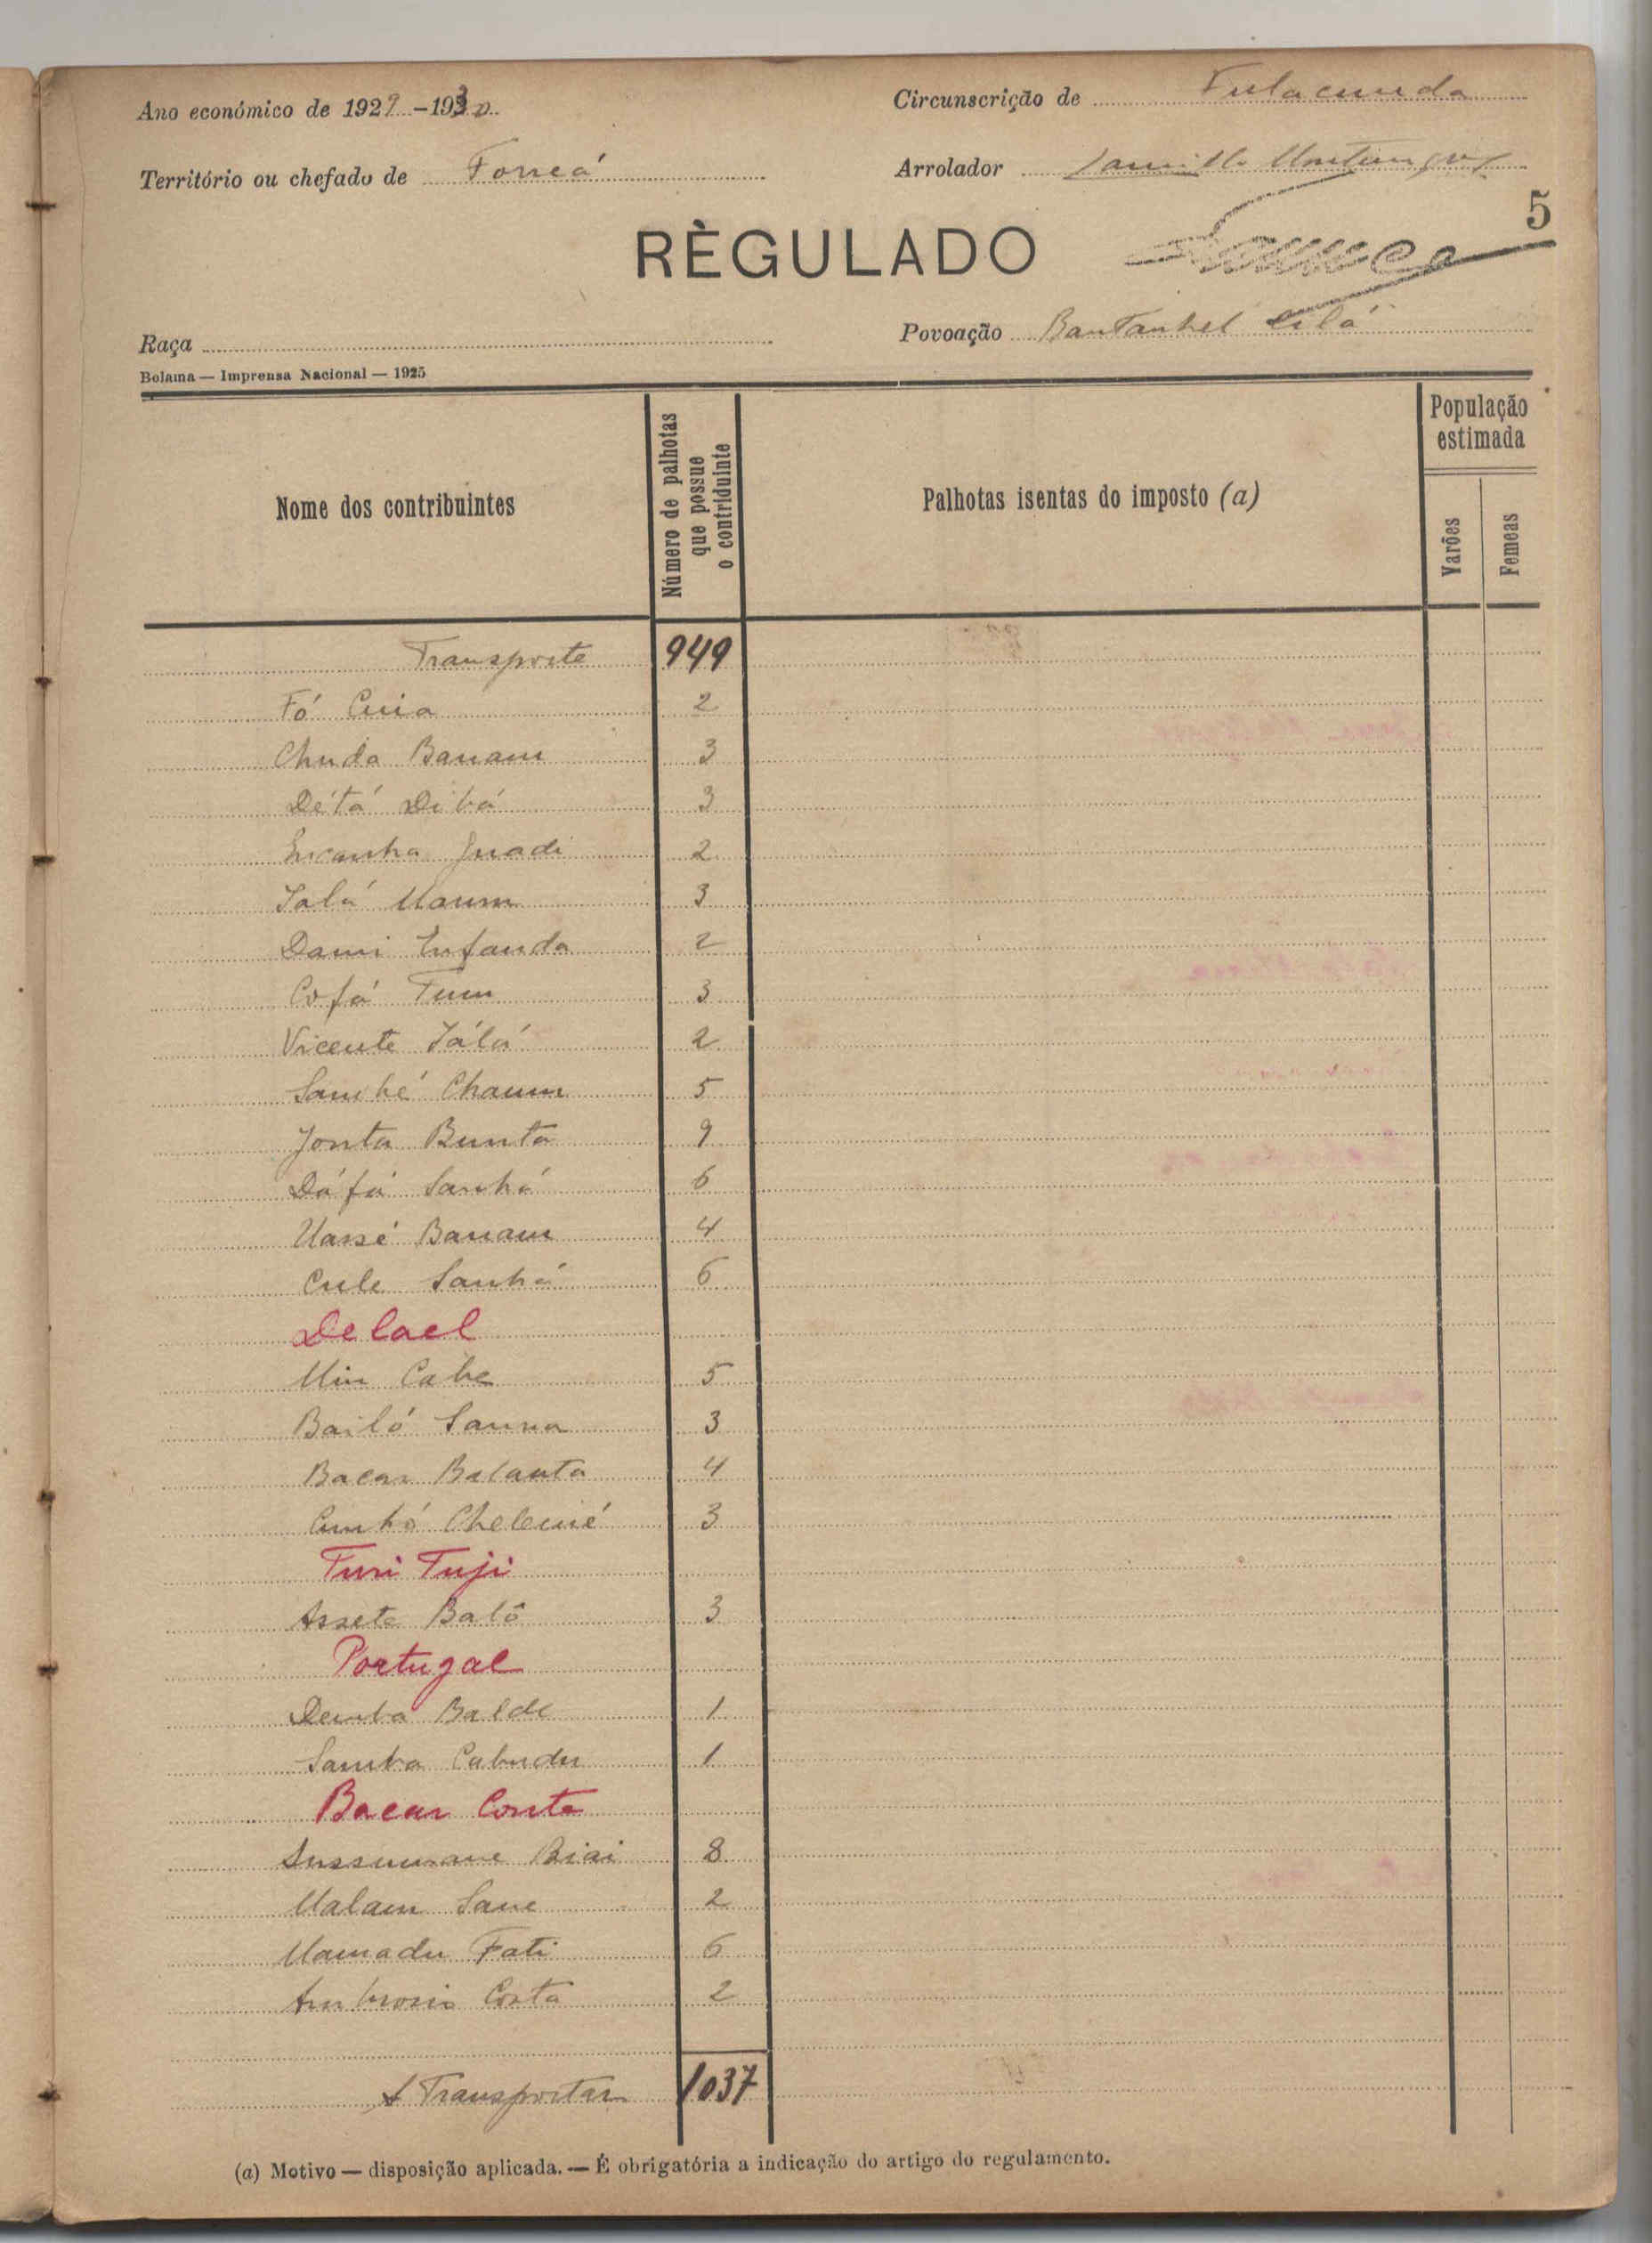 Ano económico de 1929-1930
Circunscrição de Fulacunda
Território ou chefado de Forreá
Arrolador
5
RÈGULADO
Raça
Povoação Bantanhel Silá
Bolama — Imprensa Nacional — 1925
Nome dos contribuintes
Número de palhotas que possue o contriduinte
Palhotas isentas do imposto (a)
População estimada
Varões
Femeas
Transporte 949
Fó Cuia 2
Chuda Banam 3
Détá Dibá 3
Encanha Juadi 2
Ialá Maum 3
Dami Enfanda 2
Cofá Tum 3
Vicente Iálá 2
Sambé Chaum 5
Jonta Bunta 9
Dáfá Sanhá 6
Uassé Banam 4
Cule Sanhá 6
Delael
Min Cabe 5
Bailó Sanna 3
Bacar Balanta 4
Cumbó 3
Turi Tuji
Assete Baló 3
Portugal
Demba Balde 1
Samba Cabudu 1
Bacar Conte
Sussumane Biai 8
Malam Sane 2
Mamadu Fati 6
Ambrosio Costa 2
A Transportar 1037
(a) Motivo — disposição aplicada. — É obrigatória a indicação do artigo do regulamento.